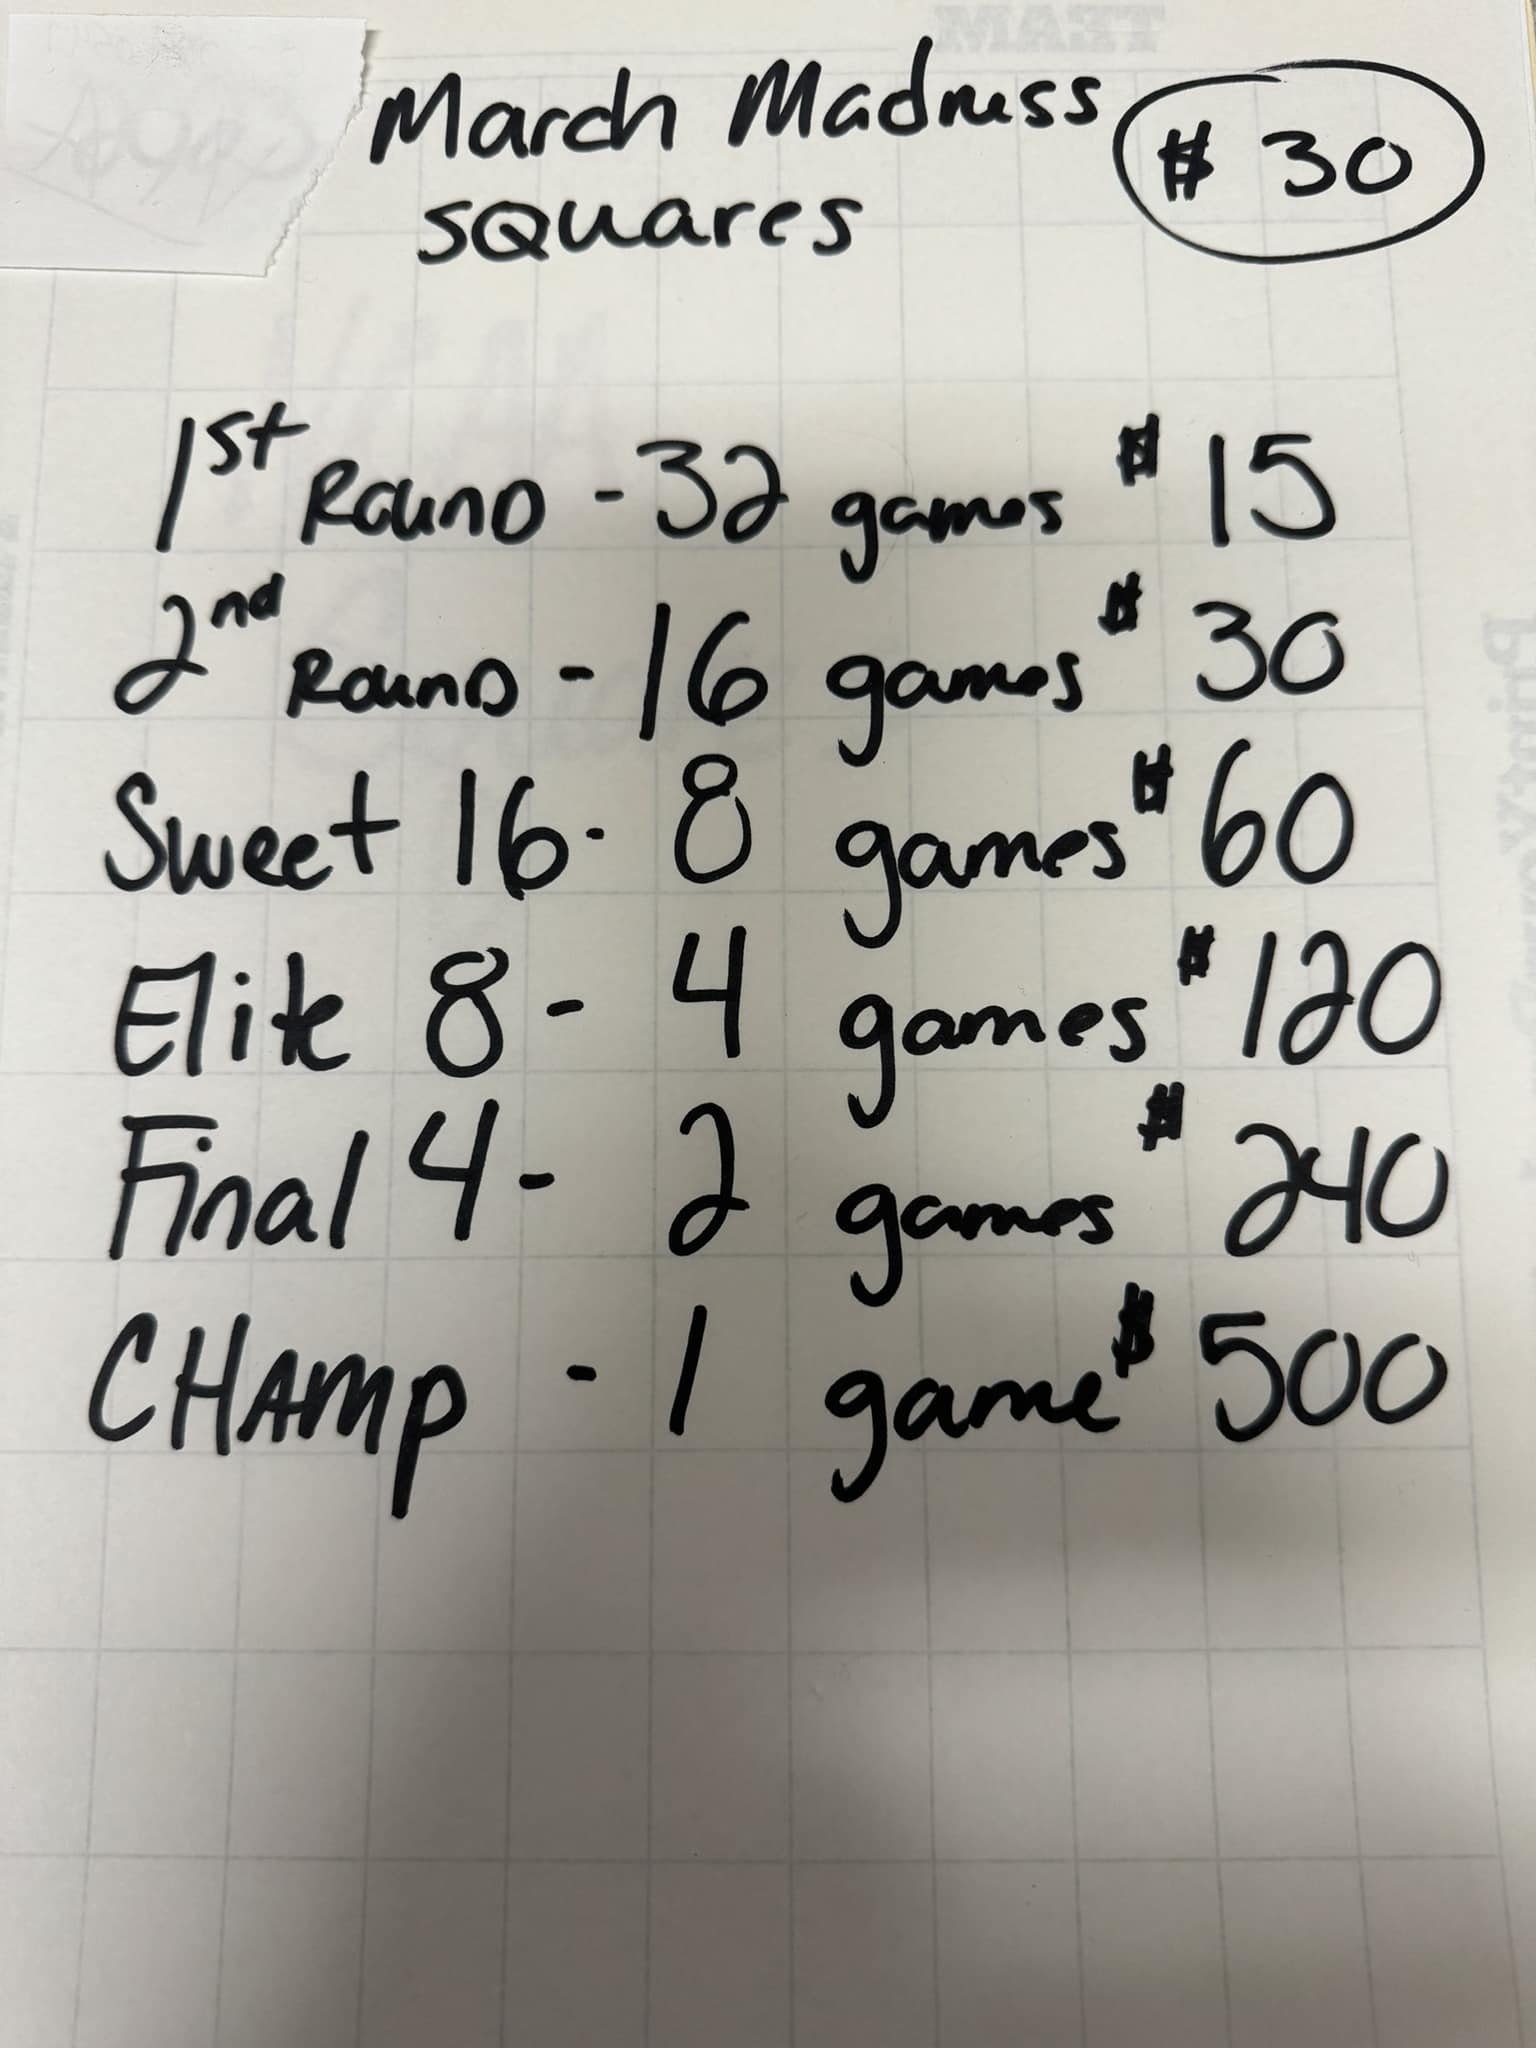 March Madness $30
squares
1st Round - 32 games $15
2nd Round - 16 games $30
Sweet 16 - 8 games $60
Elite 8 - 4 games $120
Final 4 - 2 games $240
CHAMP - 1 game $500